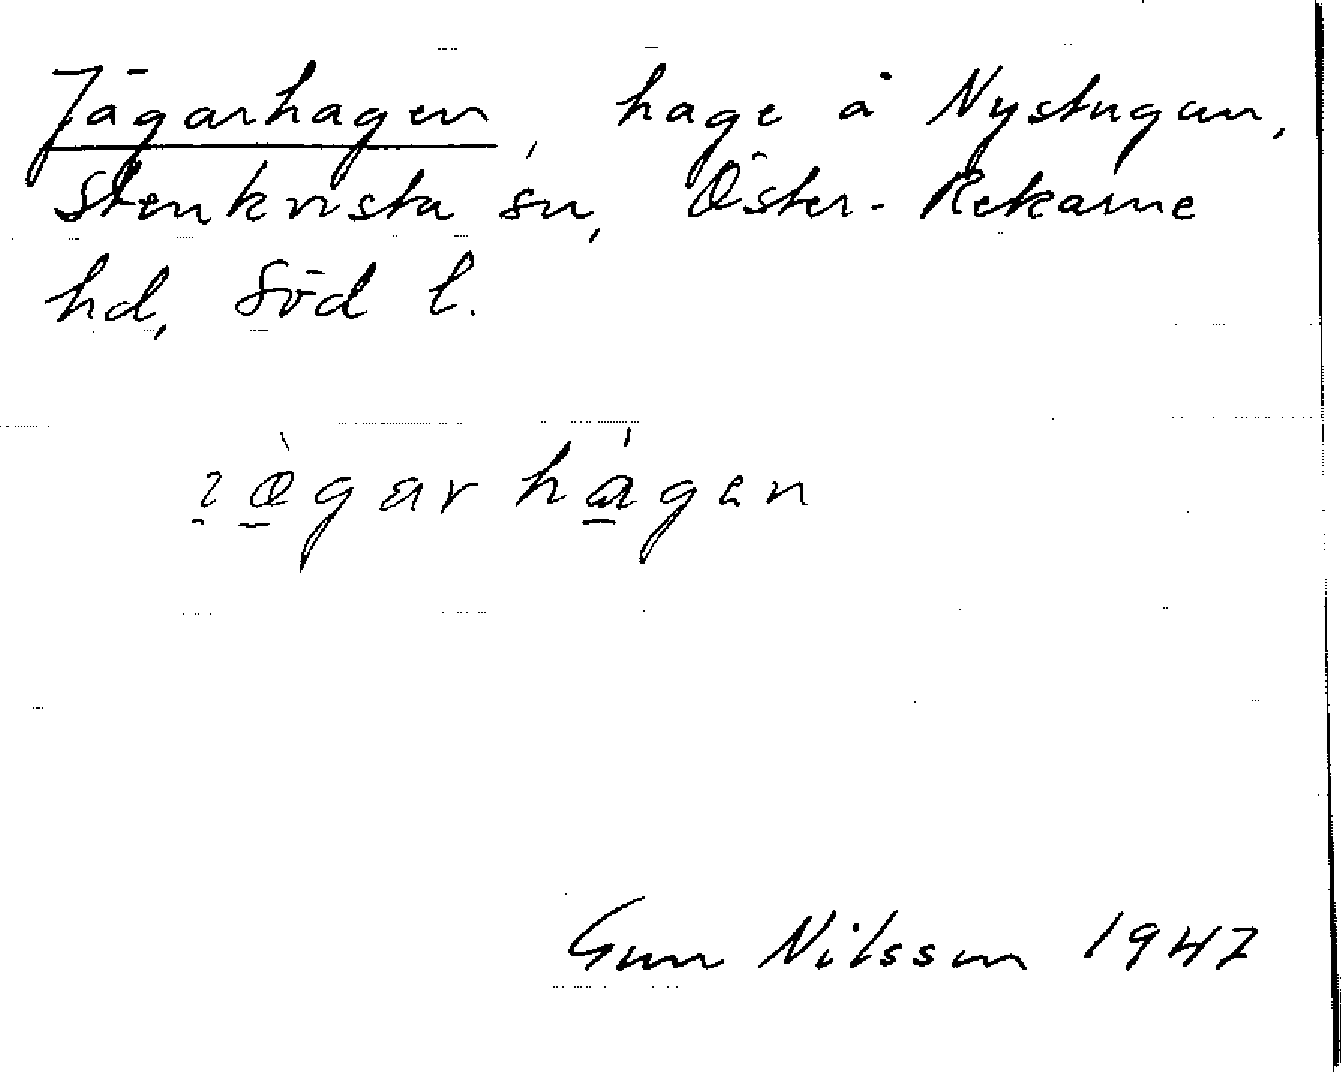 Jägarhagen, hage å Nystugan,
Stenkvista sn, Öster-Rekarne
hd, Söd l.
Gun Nilsson 1947